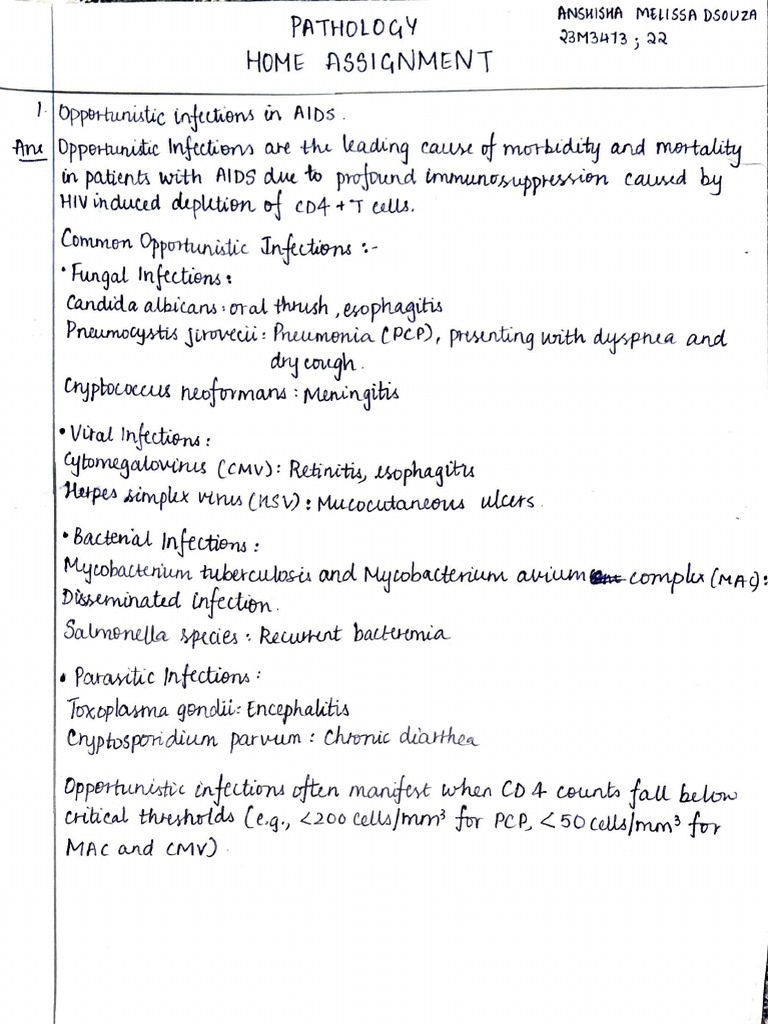 PATHOLOGY
HOME ASSIGNMENT
ANSHISHA MELISSA DSOUZA
23M3413 ; 22
1. Opportunistic infections in AIDS.
Ans Opportunistic Infections are the leading cause of morbidity and mortality
in patients with AIDS due to profound immunosuppression caused by
HIV induced depletion of CD4 + T cells.
Common Opportunistic Infections :-
• Fungal Infections:
Candida albicans: oral thrush, esophagitis
Pneumocystis jirovecii: Pneumonia (PCP), presenting with dyspnea and
dry cough.
Cryptococcus neoformans: Meningitis
• Viral Infections:
Cytomegalovirus (CMV): Retinitis, esophagitis
Herpes simplex virus (HSV): Mucocutaneous ulcers.
• Bacterial Infections:
Mycobacterium tuberculosis and Mycobacterium avium complex (MAC):
Disseminated infection.
Salmonella species: Recurrent bacteremia
• Parasitic Infections:
Toxoplasma gondii: Encephalitis
Cryptosporidium parvum: Chronic diarrhea
Opportunistic infections often manifest when CD4 counts fall below
critical thresholds (e.g., <200 cells/mm³ for PCP, <50 cells/mm³ for
MAC and CMV).